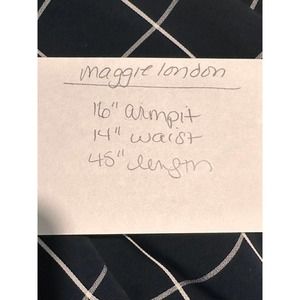 maggie london
16" armpit
14" waist
45" length